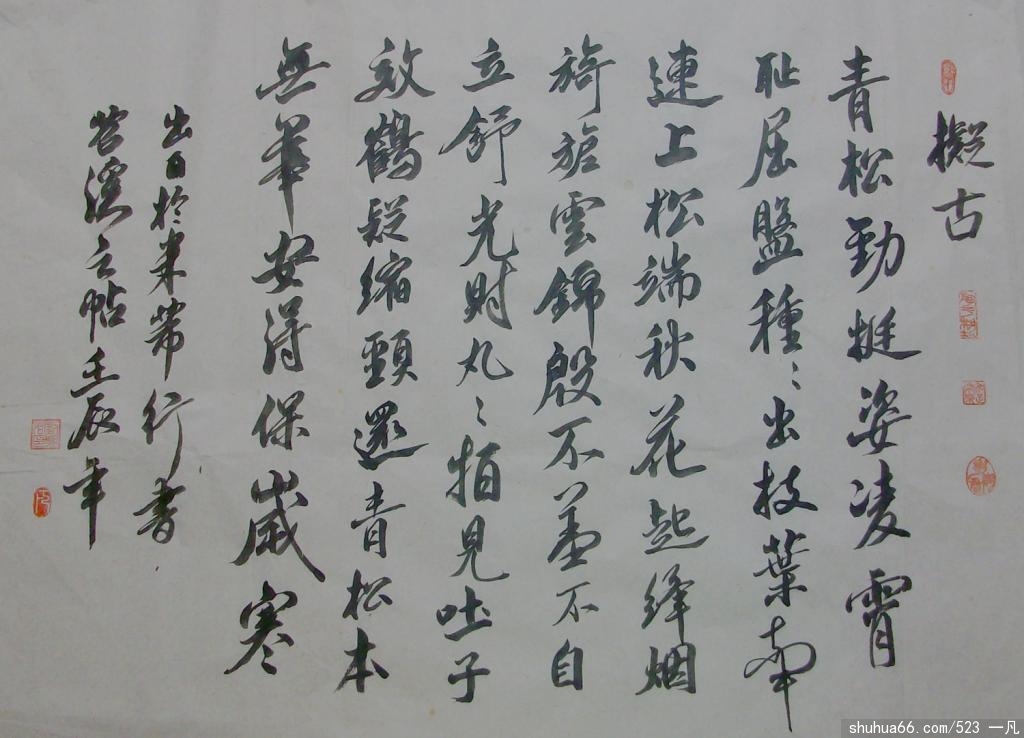 擬古
青松勁挺姿凌霄
耻屈盤種〻出枝葉牽
連上松端秋花起絳烟
旖旎雲錦殷不羞不自
立舒光射丸〻柏見吐子
效鶴疑縮頸還青松本
無華安得保歲寒
出自於米芾行書
苕溪之帖壬辰年
shuhua66.com/523 一凡